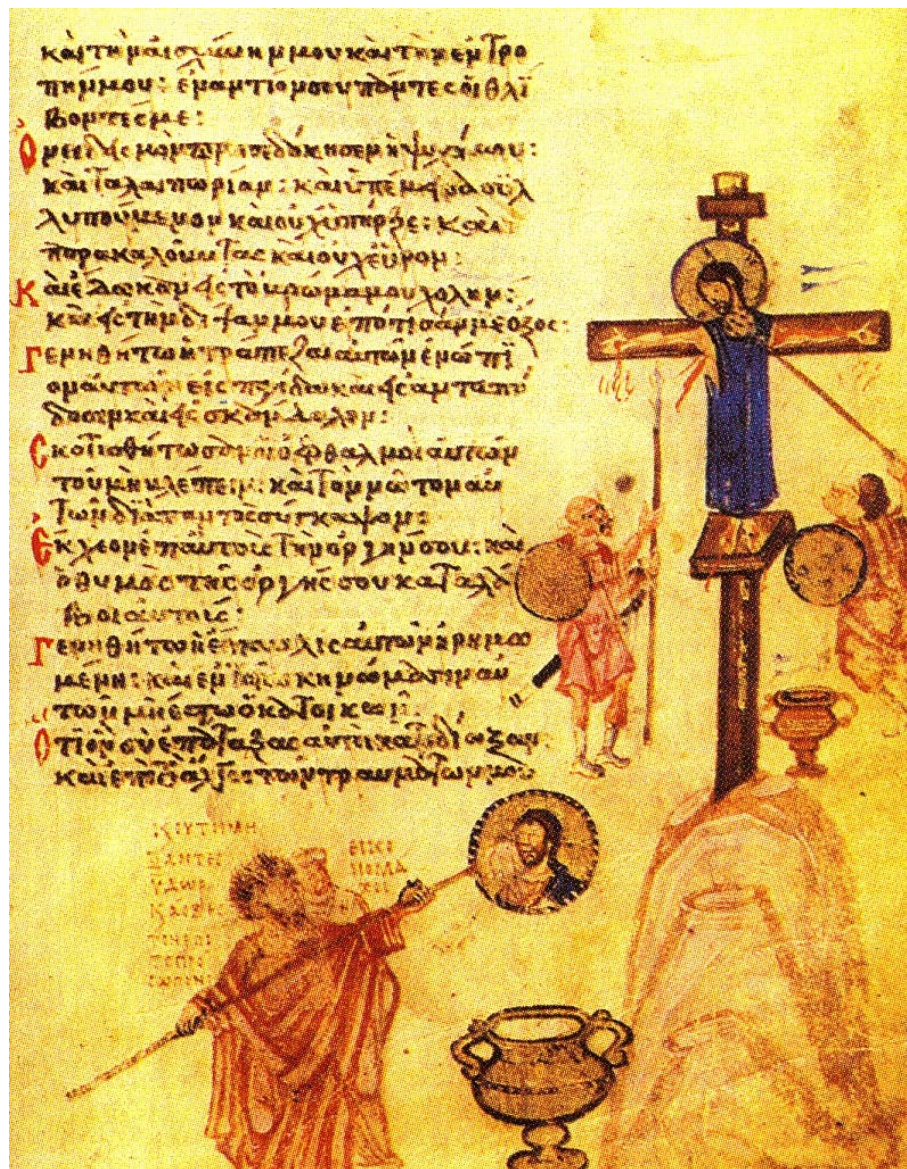 καὶ τὴν αἰσχύνην μου καὶ τὴν ἐντρο
πήν μου: ἐναντίον σου πάντες οἱ θλί
βοντές με:
Ὀνειδισμὸν προσεδόκησεν ἡ ψυχή μου:
καὶ ταλαιπωρίαν: καὶ ὑπέμεινα συλ
λυπούμενον καὶ οὐχ ὑπῆρξε: καὶ
παρακαλοῦντας καὶ οὐχ εὗρον:
Καὶ ἔδωκαν εἰς τὸ βρῶμα μου χολήν:
καὶ εἰς τὴν δίψαν μου ἐπότισάν με ὄξος:
Γενηθήτω ἡ τράπεζα αὐτῶν ἐνώπι
ον αὐτῶν εἰς παγίδα καὶ εἰς ἀνταπό
δοσιν καὶ εἰς σκάνδαλον:
Σκοτισθήτωσαν οἱ ὀφθαλμοὶ αὐτῶν
τοῦ μὴ βλέπειν: καὶ τὸν νῶτον αὐ
τῶν διὰ παντὸς σύγκαμψον:
Ἔκχεον ἐπ' αὐτοὺς τὴν ὀργήν σου: καὶ
ὁ θυμὸς τῆς ὀργῆς σου καταλά
βοι αὐτούς:
Γενηθήτω ἡ ἔπαυλις αὐτῶν ἠρημω
μένη: καὶ ἐν τοῖς σκηνώμασιν αὐ
τῶν μὴ ἔστω ὁ κατοικῶν:
Ὅτι ὃν σὺ ἐπάταξας αὐτοὶ κατεδίωξαν:
καὶ ἐπὶ τὸ ἄλγος τῶν τραυμάτων μου
ΞΑΝΤΕΣ
ΥΔΩΡ
ΕΙΚΟ
ΝΟΜΑ
ΧΟΙ